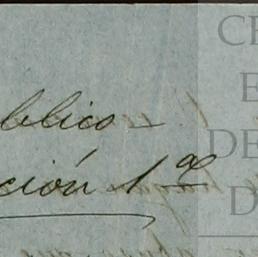 blico-
ción 1ª
CE
E
DE
D